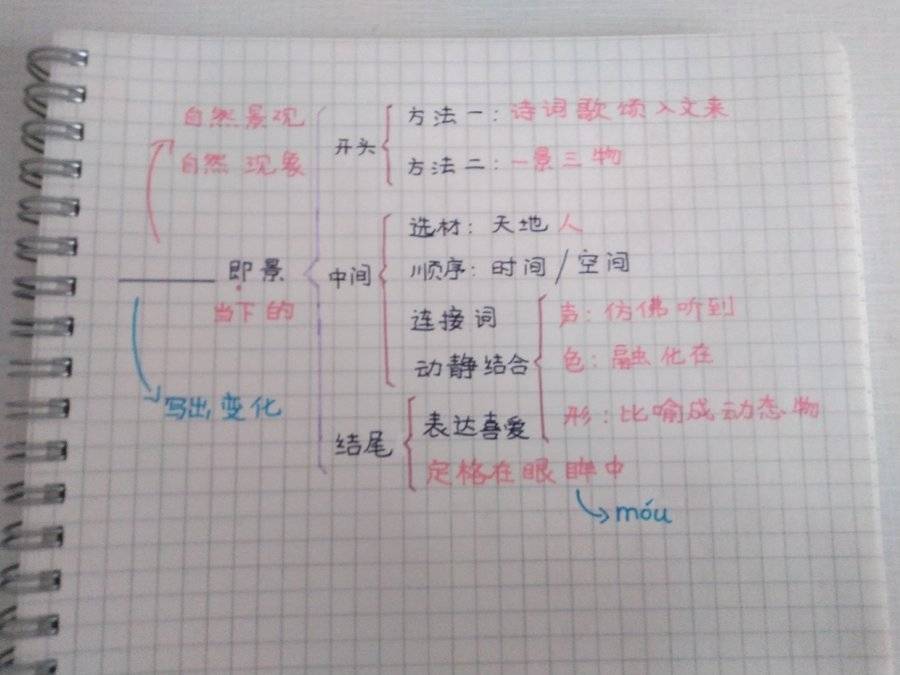 自然景观
自然现象
______即景
当下的
写出变化
开头
方法一：诗词歌颂入文来
方法二：一景三物
中间
选材：天地人
顺序：时间/空间
连接词
动静结合
声：仿佛听到
色：融化在
形：比喻成动态物
结尾
表达喜爱
定格在眼眸中
móu